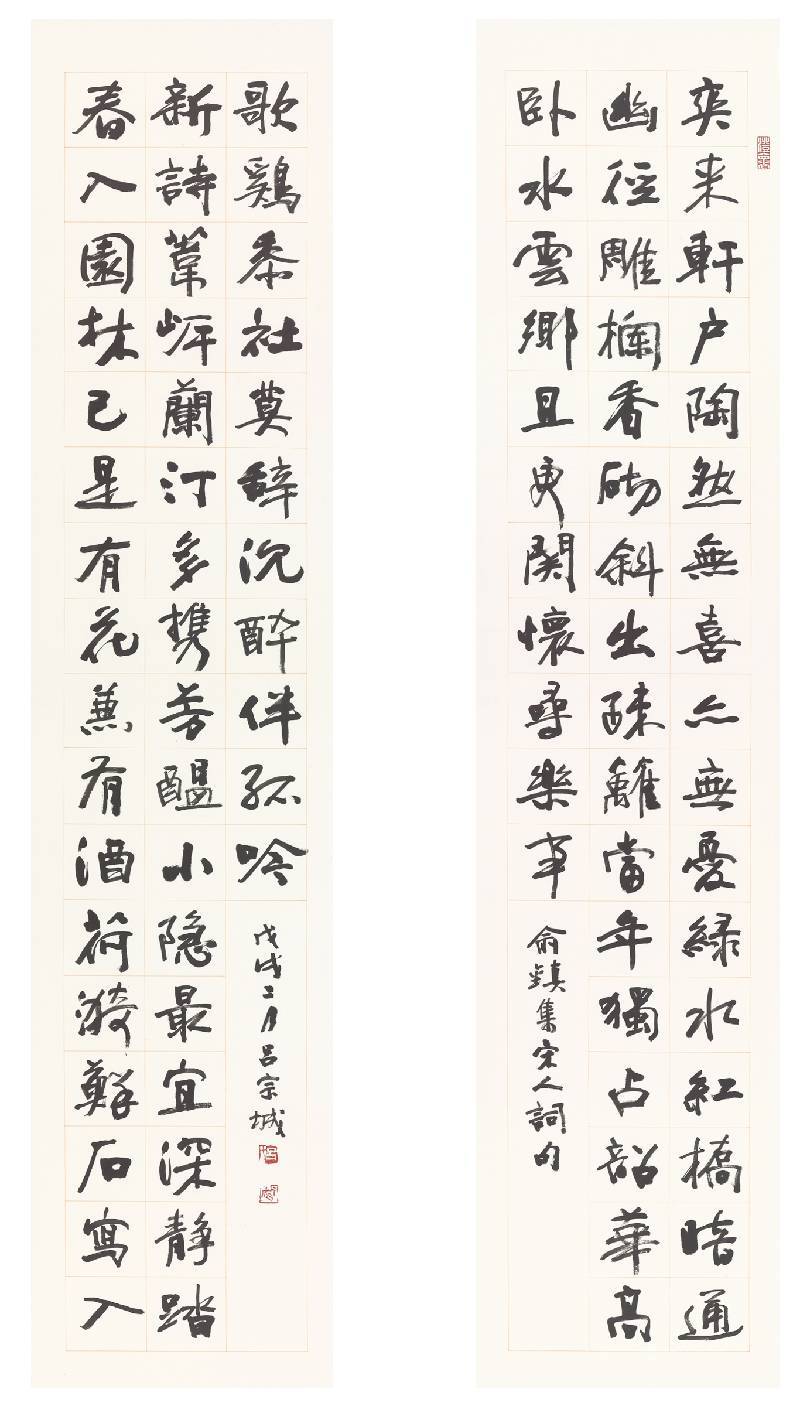 爽来軒户陶然無喜亦無憂緑水紅橋暗通
幽徑雕欄香砌斜出疎籬當年獨占韶華高
卧水雲鄉且更関懷尋樂事
俞鎮集宋人詞句
春入園林已是有花兼有酒荷漪蘚石寫入
新詩葦岸蘭汀多携芳醖小隐最宜深静踏
歌鷄黍社莫辞沉醉伴孤吟
戊戌二月吕宗城